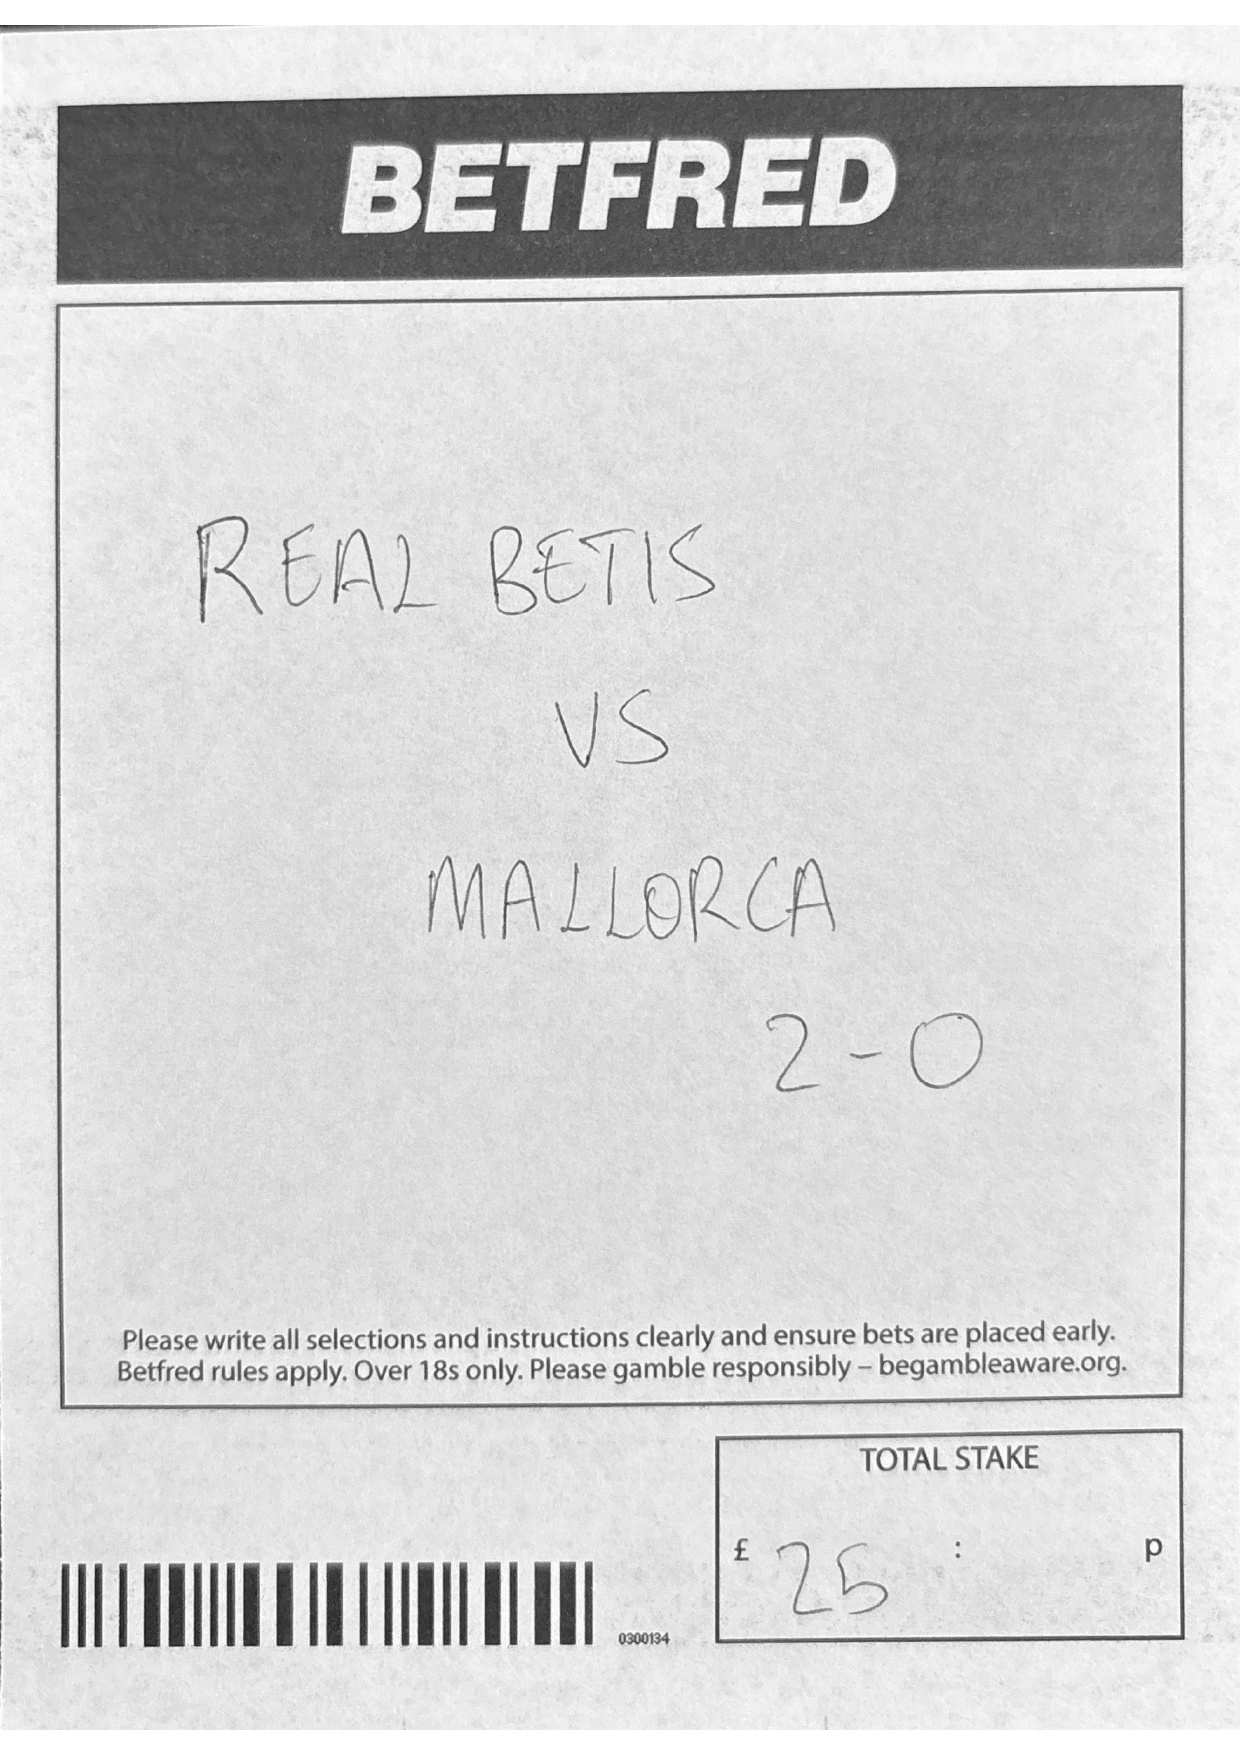 BETFRED
REAL BETIS
VS
MALLORCA
2-0
Please write all selections and instructions clearly and ensure bets are placed early.
Betfred rules apply. Over 18s only. Please gamble responsibly – begambleaware.org.
TOTAL STAKE
£ 25 : p
0300134